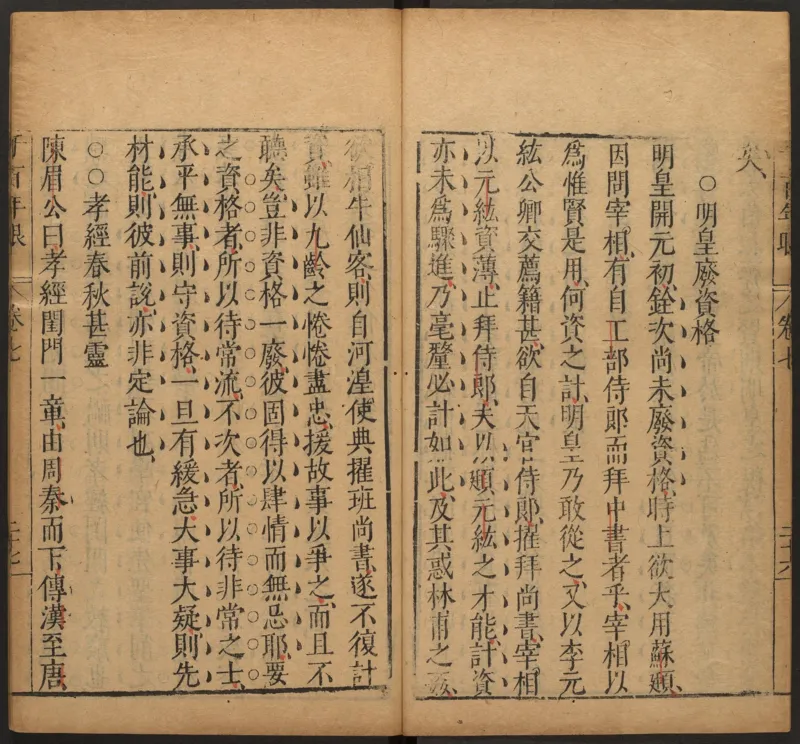 矣
○明皇廢資格
明皇開元初銓次尚未廢資格時上欲大用蘇頲
因問宰相有自工部侍郎而拜中書者乎宰相以
爲惟賢是用何資之計明皇乃敢從之又以李元
紘公卿交薦籍甚欲自天官侍郎擢拜尚書宰相
以元紘資薄止拜侍郎夫以頲元紘之才能計資
亦未爲驟進乃毫釐必計如此及其惑林甫之
千百年眼
卷七
二十六
欲相牛仙客則自河湟使典擢班尚書遂不復計
資雖以九齡之惓惓盡忠援故事以爭之而且不
聽矣豈非資格一廢彼固得以肆情而無忌耶要
之資格者所以待常流不次者所以待非常之士
承平無事則守資格一旦有緩急大事大疑則先
材能則彼前說亦非定論也
○○孝經春秋甚靈
陳眉公曰孝經閨門一章由周秦而下傳漢至唐
千百年眼
卷七
二十七